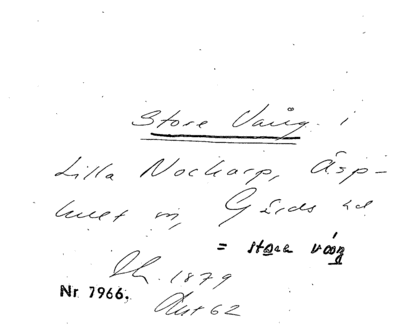 Store Vång i
Lilla Nockarp, Äsp-
hult sn, Gärds hd
= store vång
1879
Nr 7966.
62